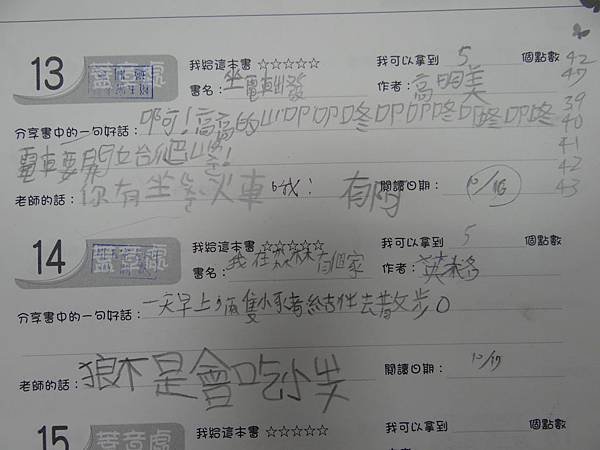 13 蓋章處 我給這本書 ☆☆☆☆☆ 我可以拿到 5 個點數
書名：坐電車出發 作者：高明美
分享書中的一句好話：啊！高高的山叩叩咚叩叩咚叩咚叩咚
電車要開始爬山
老師的話：你有坐 火車 閱讀日期：10/16
42
39
40
41
42
43
14 蓋章處 我給這本書 ☆☆☆☆☆ 我可以拿到 5 個點數
書名：我在森林有個家 作者：英
分享書中的一句好話：一天早上 隻小 結伴去散步。
老師的話：狼不是會吃小 閱讀日期：10/17
15 蓋章處 我給這本書 ☆☆☆☆☆ 我可以拿到 個點數